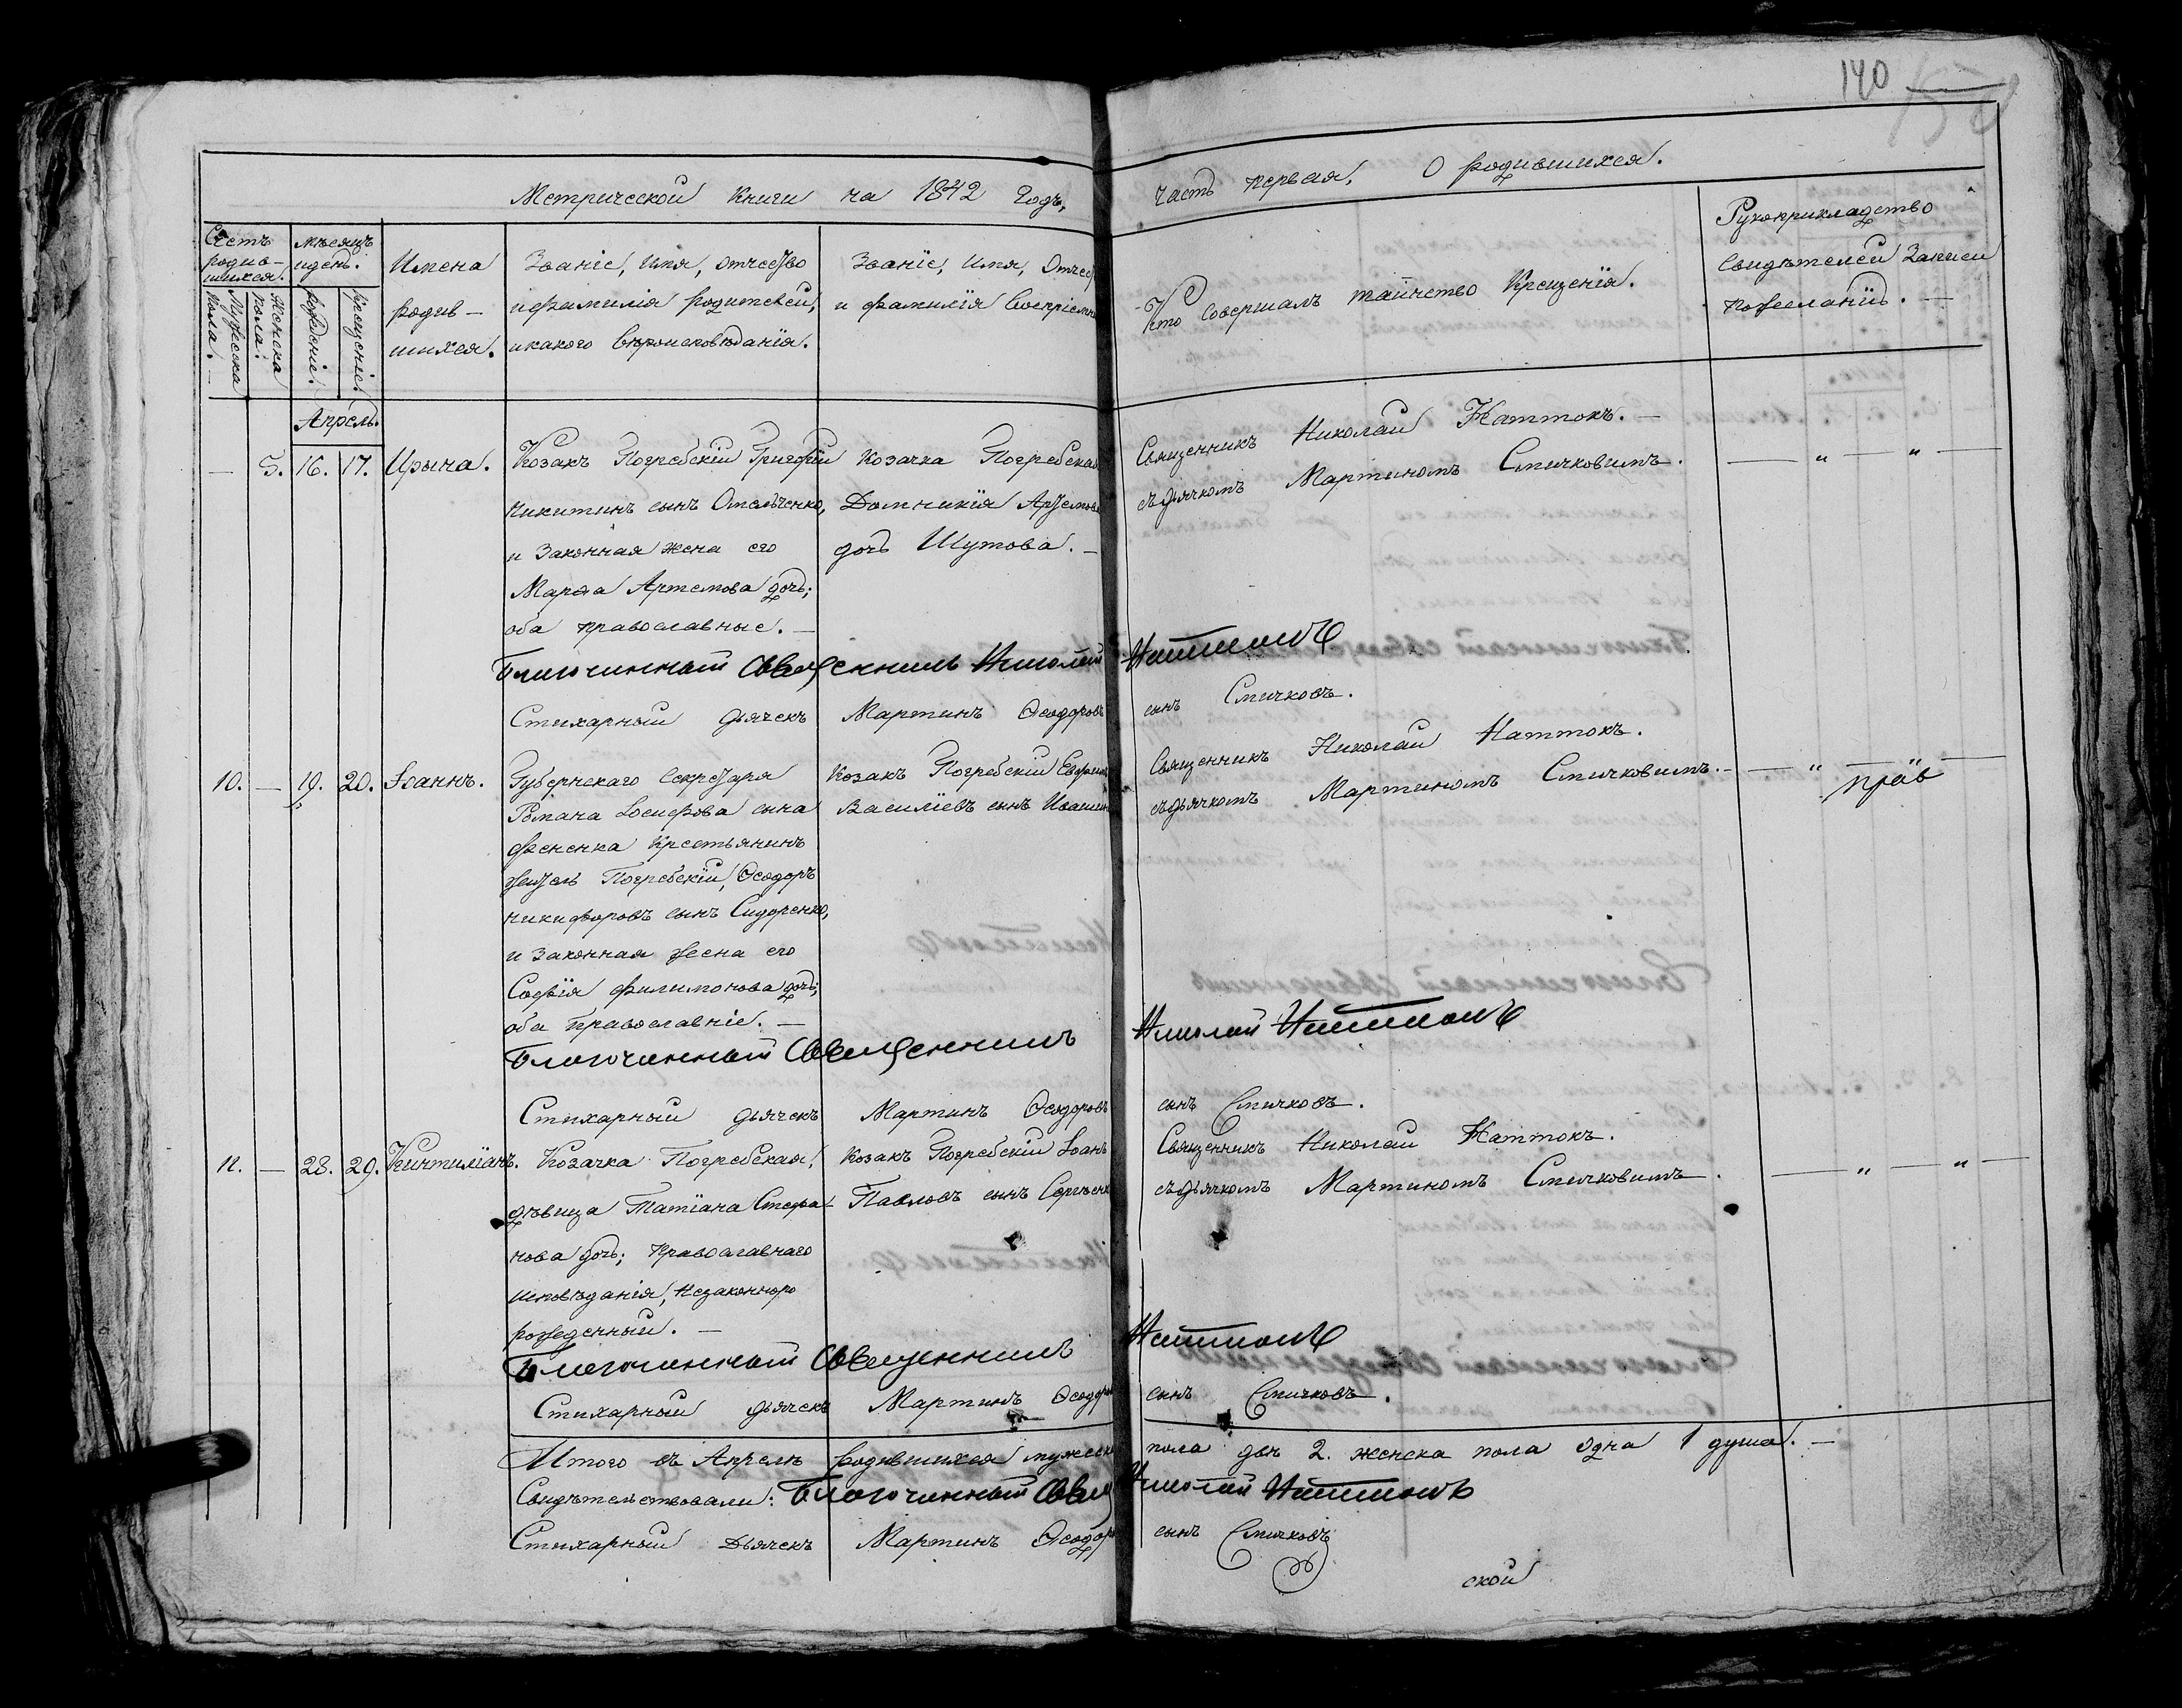 140
Метрической Книги на 1842 Годъ,
часть первая, О родившихся.
Счетъ родив-шихся.
Мужеска пола.
Женска пола.
Мѣсяцъ и день.
рожденіе.
крещеніе.
Имена
родив-
шихся.
Званіе, Имя, отчество
и фамилія родителей,
и какого вѣроисповѣданія.
Званіе, Имя, Отчес
и фамилія Воспріемн
Кто Совершалъ таинство Крещенія.
Рукоприкладство
Свидѣтелей Записи
по желанію.
Апрѣль.
— 5. 16. 17. Ирына.
Козакъ Погребскій Григорій
Никитинъ сынъ Омельченко,
и Законная жена его
Марѳа Артемова дочь;
оба православные. —
Козачка Погребская
Домникія Артемова
дочь Шутова. —
Священникъ Николай Наттокъ. —
съ дьячкомъ Мартиномъ Смичковимъ.
Благочинный Священникъ Николай Наттокъ
Стихарный дьячекъ Мартинъ Ѳеодоровъ сынъ Смичковъ.
10. — 19. 20. Іоаннъ.
Губернскаго Секретаря
Романа Іосифова сына
Фененка Крестьянинъ
житель Погребскій, Ѳеодоръ
Никифоровъ сынъ Сидоренко,
и Законная жена его
Софія Филимонова дочь;
оба Православніе. —
Козакъ Погребскій
Василіевъ сынъ
Священникъ Николай Наттокъ.
съ дьячкомъ Мартиномъ Смичковимъ. —
Благочинный Священникъ Николай Наттокъ
Стихарный дьячекъ Мартинъ Ѳеодоровъ сынъ Смичковъ.
11. — 28. 29. Кинтиліанъ.
Козачка Погребская,
дѣвица Татіана Стефа-
нова дочь; Православнаго
исповѣданія, Незаконно
рожденный. —
Козакъ Погребскій Іоанъ
Павловъ сынъ Сергѣенк
Священникъ Николай Наттокъ.
съ дьячкомъ Мартиномъ Смичковимъ.
Благочинный Священникъ Наттокъ
Стихарный дьячекъ Мартинъ Ѳеодоро сынъ Смичковъ.
Итого въ Апрелѣ родившихся мужеск пола два 2. женска пола одна 1 душа. —
Свидѣтельствовали: Благочинный Свящ Николай Наттокъ
Стихарный Дьячекъ Мартинъ Ѳеодоро сынъ Смичковъ
ской